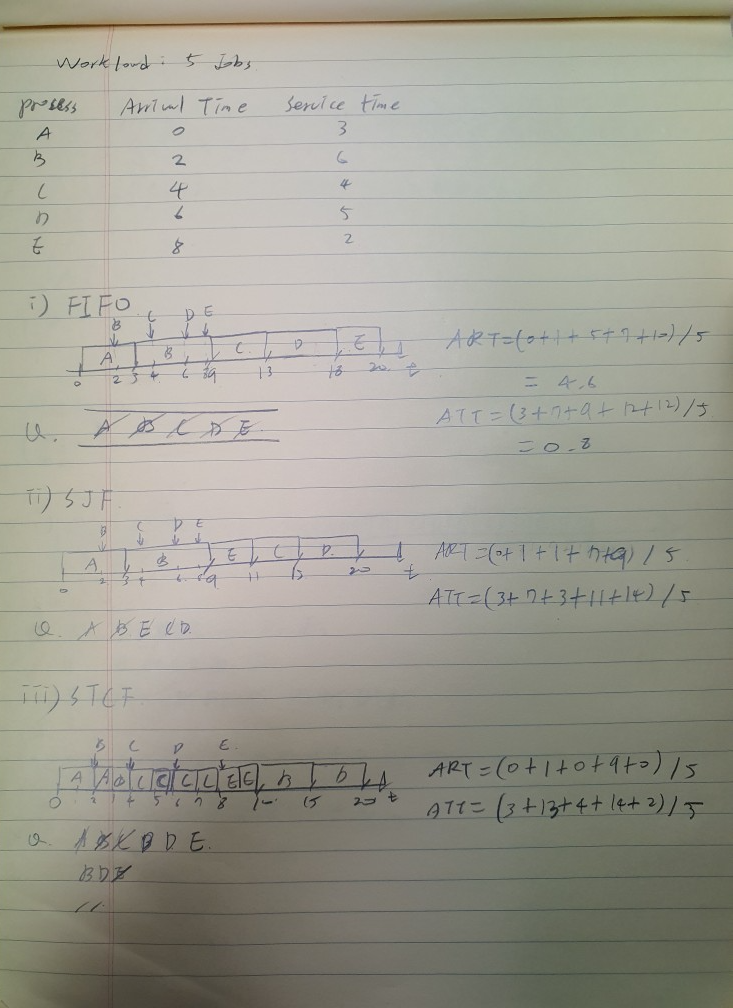 Workload: 5 Jobs
process Arrival Time Service time
A 0 3
B 2 6
C 4 4
D 6 5
E 8 2
i) FIFO
B C D E
A B C D E
0 2 3 4 6 8 9 13 18 20 t
ART=(0+1+5+7+10)/5
= 4.6
Q. A B C D E
ATT=(3+7+9+12+12)/5
= 0.8
ii) SJF
B C D E
A B E C D
0 2 3 4 6 8 9 11 15 20 t
ART=(0+1+1+7+9)/5
ATT=(3+7+3+11+14)/5
Q. A B E C D
iii) STCF
B C D E.
A A B C C C C E E B D
0 2 3 4 5 6 7 8 10 15 20 t
ART=(0+1+0+9+0)/5
ATT=(3+13+4+14+2)/5
Q. A B C B D E.
B D E